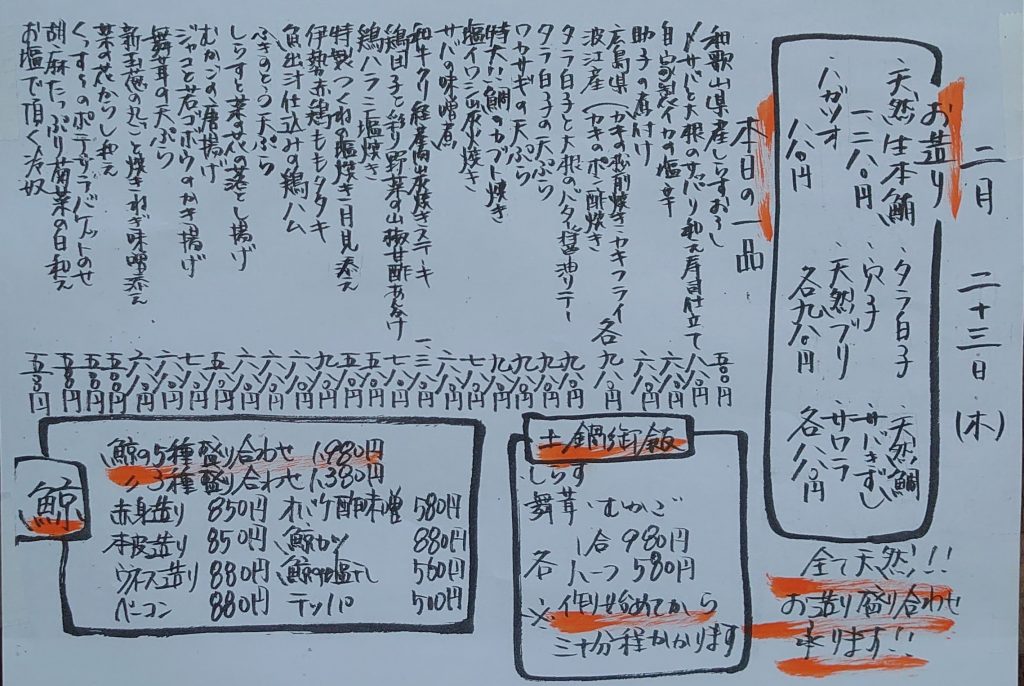 二月 二十三日 (木)
お造り
天然生本鮪
一二八〇円
ハガツオ
八八〇円
タラ白子
穴子
天然ブリ
各九八〇円
天然鯛
サバきずし
サワラ
各八八〇円
全て天然!!
お造り盛り合わせ
承ります!!
本日の一品
和歌山県産しらすおろし 五八〇円
〆サバと大根のサッパリ和え寿司仕立て 八八〇円
自家製イカの塩辛 六八〇円
助子の煮付け 六八〇円
広島県 カキの殻付焼き カキフライ
波江産 カキのポン酢焼き 各九八〇円
タラ白子と大根のバタ醤油ソテー 九八〇円
タラ白子の天ぷら 九八〇円
ワカサギの天ぷら
特大!!鯛のカブト焼き
塩イワシ炭火焼き
サバの味噌煮
和牛クリ 経産肉炭焼きステーキ
鶏団子と彩り野菜の山椒甘酢あんかけ
鶏ハラミ塩焼き
特製つくねの塩焼き 月見添え
伊勢赤鶏ももタタキ
魚出汁仕込みの鶏ハム
ふきのとう天ぷら
しらすと菜の花の落とし揚げ
むかごの唐揚げ
ジャコと若ゴボウのかき揚げ
舞茸の天ぷら
新玉葱の丸ごと焼き ねぎ味噌添え
菜の花からし和え
くっすうのポテサラ バケットのせ
胡麻たっぷり菊菜の白和え
お塩で頂く冷奴 五八〇円
土鍋御飯
しらす
舞茸 むかご
各 1合 980円
ハーフ 580円
※作り始めてから
三十分程かかります
鯨
鯨の5種盛り合わせ 1,980円
〃3種盛り合わせ 1,380円
赤身造り 850円 オバケ酢味噌 580円
本皮造り 850円 鯨カツ 880円
ウネス造り 880円 鯨の塩干し 560円
ベーコン 880円 テッパ 500円